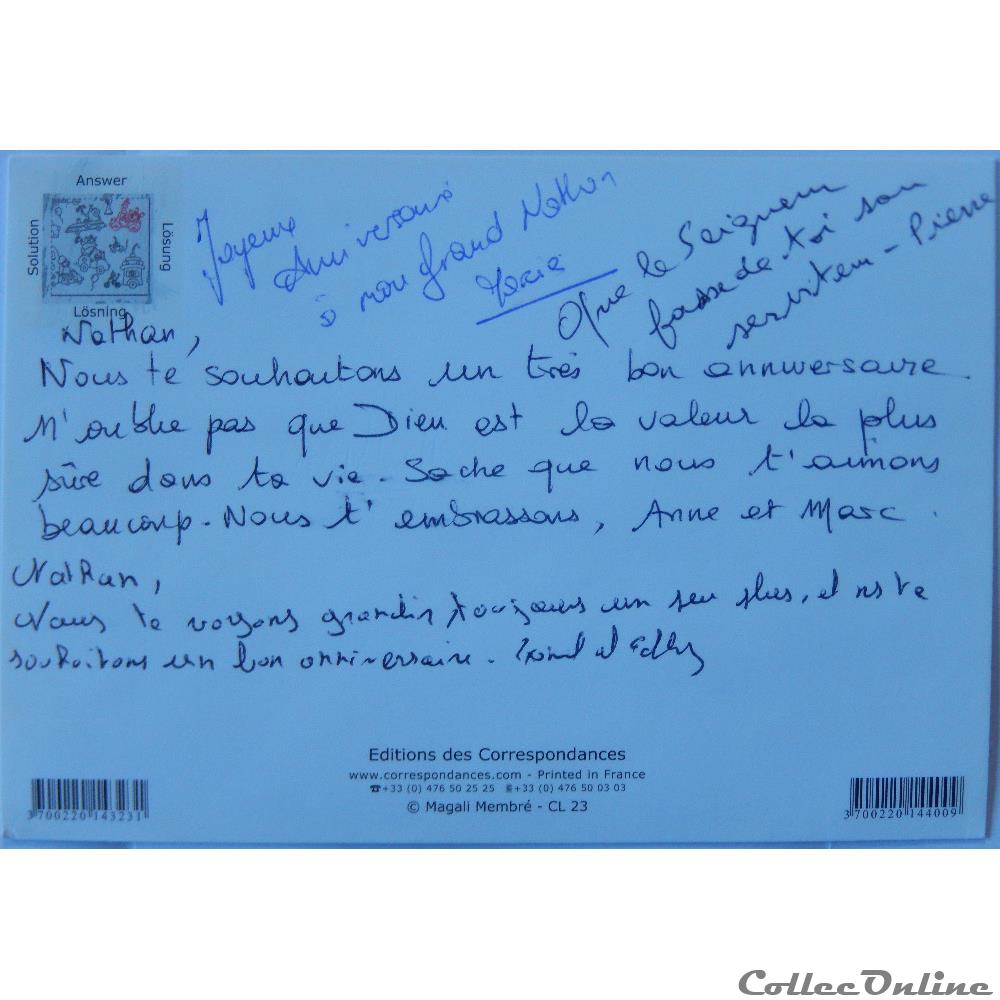 Answer
Solution
Lösung
Lösning
Joyeux
Anniversaire
à mon grand Nathan
Que le Seigneur
fasse de toi son
serviteur - Pierre
Nathan,
Nous te souhaitons un très bon anniversaire.
N'oublie pas que Dieu est la valeur la plus
sûre dans ta vie. Sache que nous t'aimons
beaucoup. Nous t'embrassons, Anne et Marc.
Nathan,
Nous te voyons grandir toujours un peu plus, et ns te
souhaitons un bon anniversaire. et
Editions des Correspondances
www.correspondances.com - Printed in France
☎+33 (0) 476 50 25 25 +33 (0) 476 50 03 03
© Magali Membré - CL 23
3 700220 143231
3 700220 144009
CollecOnline